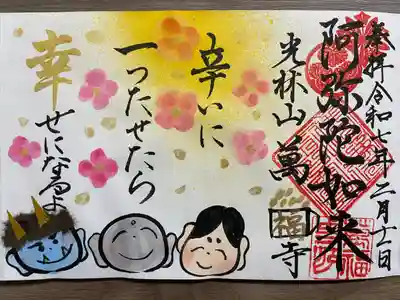 奉拝令和七年二月十一日
阿弥陀如来
光林山萬福寺
辛いに
一つたせたら
幸せになるよ